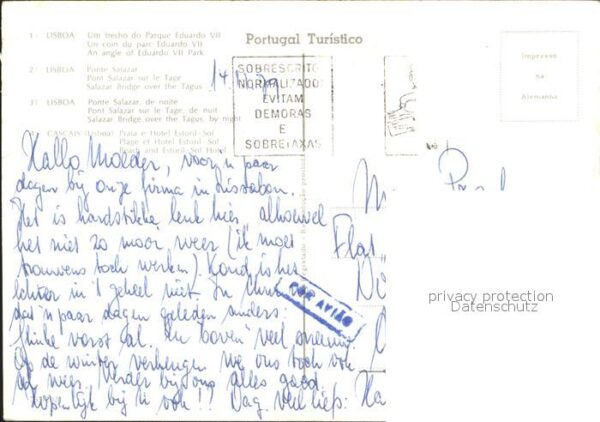 1: LISBOA Um trecho do Parque Eduardo VII
Un coin du parc Eduardo VII
An angle of Eduardo VII Park
2: LISBOA Ponte Salazar
Pont Salazar sur le Tage
Salazar Bridge over the Tagus
3: LISBOA Ponte Salazar, de noite
Pont Salazar sur le Tage, de nuit
Salazar Bridge over the Tagus, by night
CASCAIS (Lisboa) Praia e Hotel Estoril-Sol
Plage et Hotel Estoril-Sol
Beach and Estoril-Sol Hotel
Portugal Turístico
SOBRESCRITO
NORMALIZADO
EVITAM
DEMORAS
E
SOBRETAXAS
Impresso
na
Alemanha
Hallo Moeder, voor 'n paar
dagen bij onze firma in Lissabon.
Het is hardstikke leuk hier, alhoewel
het niet zo mooi weer (ik moet
trouwens toch werken). Koud is het
echter in 't geheel niet. In
dat 'n paar dagen geleden anders.
Flinke vorst al. En boven veel sneeuw
Op de winter verheugen we ons toch ook
al weer. Verder bij ons alles goed.
Hopenlijk bij U ook!! Dag. Veel liefs:
POR AVIÃO
Flat
privacy protection
Datenschutz